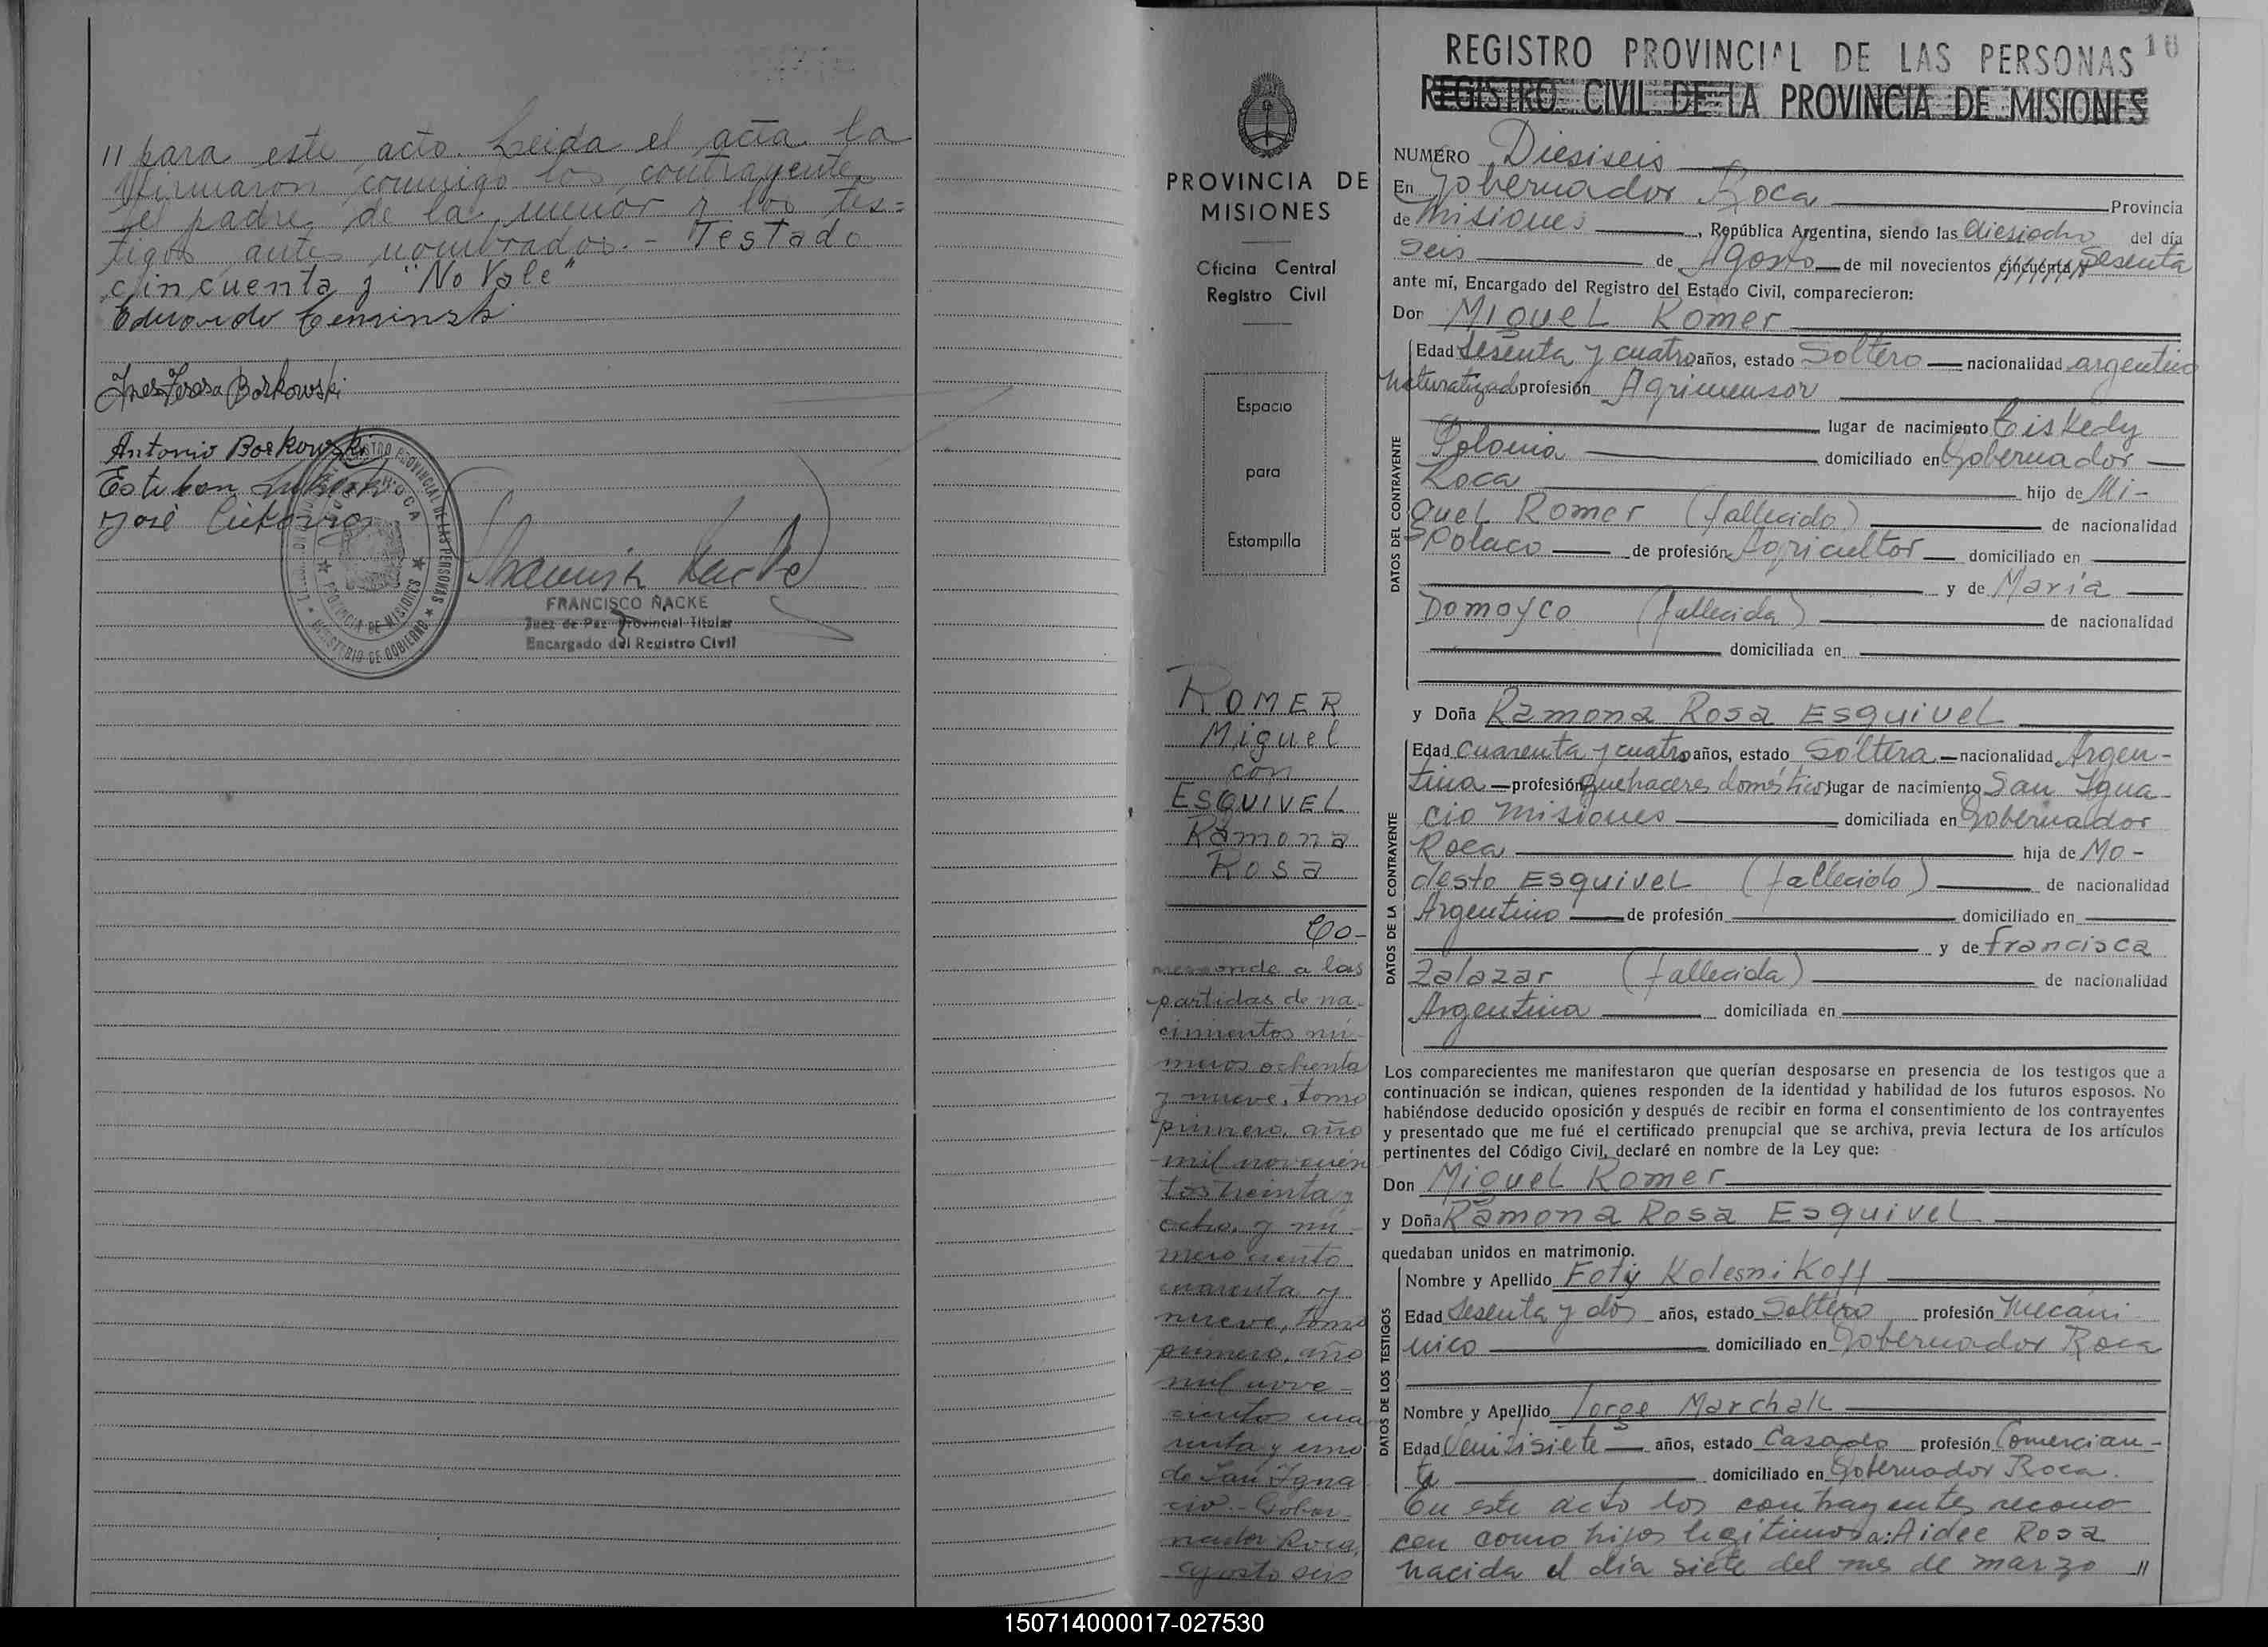 // para este acto. Leida el acta la
firmaron conmigo los contrayentes
el padre de la menor y los tes=
tigos antes nombrados.- Testado
cincuenta y "No Vale"
Eduardo
Ines Teresa Borkowski
Antonio Borkowski
Esteban
José
REGISTRO PROVINCIAL DE LAS PERSONAS
PROVINCIA DE MISIONES
MINISTERIO DE GOBIERNO
FRANCISCO NACKE
Juez de Paz Provincial Titular
Encargado del Registro Civil
PROVINCIA DE
MISIONES
Oficina Central
Registro Civil
Espacio
para
Estampilla
ROMER
Miguel
con
ESQUIVEL
Ramona
Rosa
Co-
rresponde a las
partidas de na-
cimientos nú-
meros ochenta
y nueve, tomo
primero, año
mil novecien
tos treinta y
ocho, y nú-
mero ciento
cuarenta y
nueve, tomo
primero, año
mil nove-
cientos cua
renta y uno
de San Igna
cio.- Gober-
nador Roca,
agosto seis
REGISTRO PROVINCIAL DE LAS PERSONAS 16
REGISTRO CIVIL DE LA PROVINCIA DE MISIONES
NUMERO Diesiseis
En Gobernador Roca Provincia
de Misiones, República Argentina, siendo las diesiocho del día
Seis de Agosto de mil novecientos cincuenta y Sesenta
ante mí, Encargado del Registro del Estado Civil, comparecieron:
Don Miguel Romer
DATOS DEL CONTRAYENTE
Edad Sesenta y cuatro años, estado Soltero nacionalidad argentino
naturalizado profesión Agrimensor
lugar de nacimiento Ciskedy
Polonia domiciliado en Gobernador
Roca hijo de Mi-
guel Romer (fallecido) de nacionalidad
Polaco de profesión Agricultor domiciliado en
y de María
Domoyco (fallecida) de nacionalidad
domiciliada en
y Doña Ramona Rosa Esquivel
DATOS DE LA CONTRAYENTE
Edad cuarenta y cuatro años, estado Soltera nacionalidad Argen-
tina profesión quehaceres domésticos lugar de nacimiento San Igna-
cio Misiones domiciliada en Gobernador
Roca hija de Mo-
desto Esquivel (fallecido) de nacionalidad
Argentino de profesión domiciliado en
y de Francisca
Zalazar (fallecida) de nacionalidad
Argentina domiciliada en
Los comparecientes me manifestaron que querían desposarse en presencia de los testigos que a
continuación se indican, quienes responden de la identidad y habilidad de los futuros esposos. No
habiéndose deducido oposición y después de recibir en forma el consentimiento de los contrayentes
y presentado que me fué el certificado prenupcial que se archiva, previa lectura de los artículos
pertinentes del Código Civil, declaré en nombre de la Ley que:
Don Miguel Romer
y Doña Ramona Rosa Esquivel
quedaban unidos en matrimonio.
DATOS DE LOS TESTIGOS
Nombre y Apellido Foty Kolesnikoff
Edad Sesenta y dos años, estado Soltero profesión Mecáni
nico domiciliado en Gobernador Roca
Nombre y Apellido Jorge Marchak
Edad Veintisiete años, estado Casado profesión Comercian-
te domiciliado en Gobernador Roca.
En este acto los contrayentes recono
cen como hijos legitimos a: Aidee Rosa
nacida el día siete del mes de marzo //
150714000017-027530